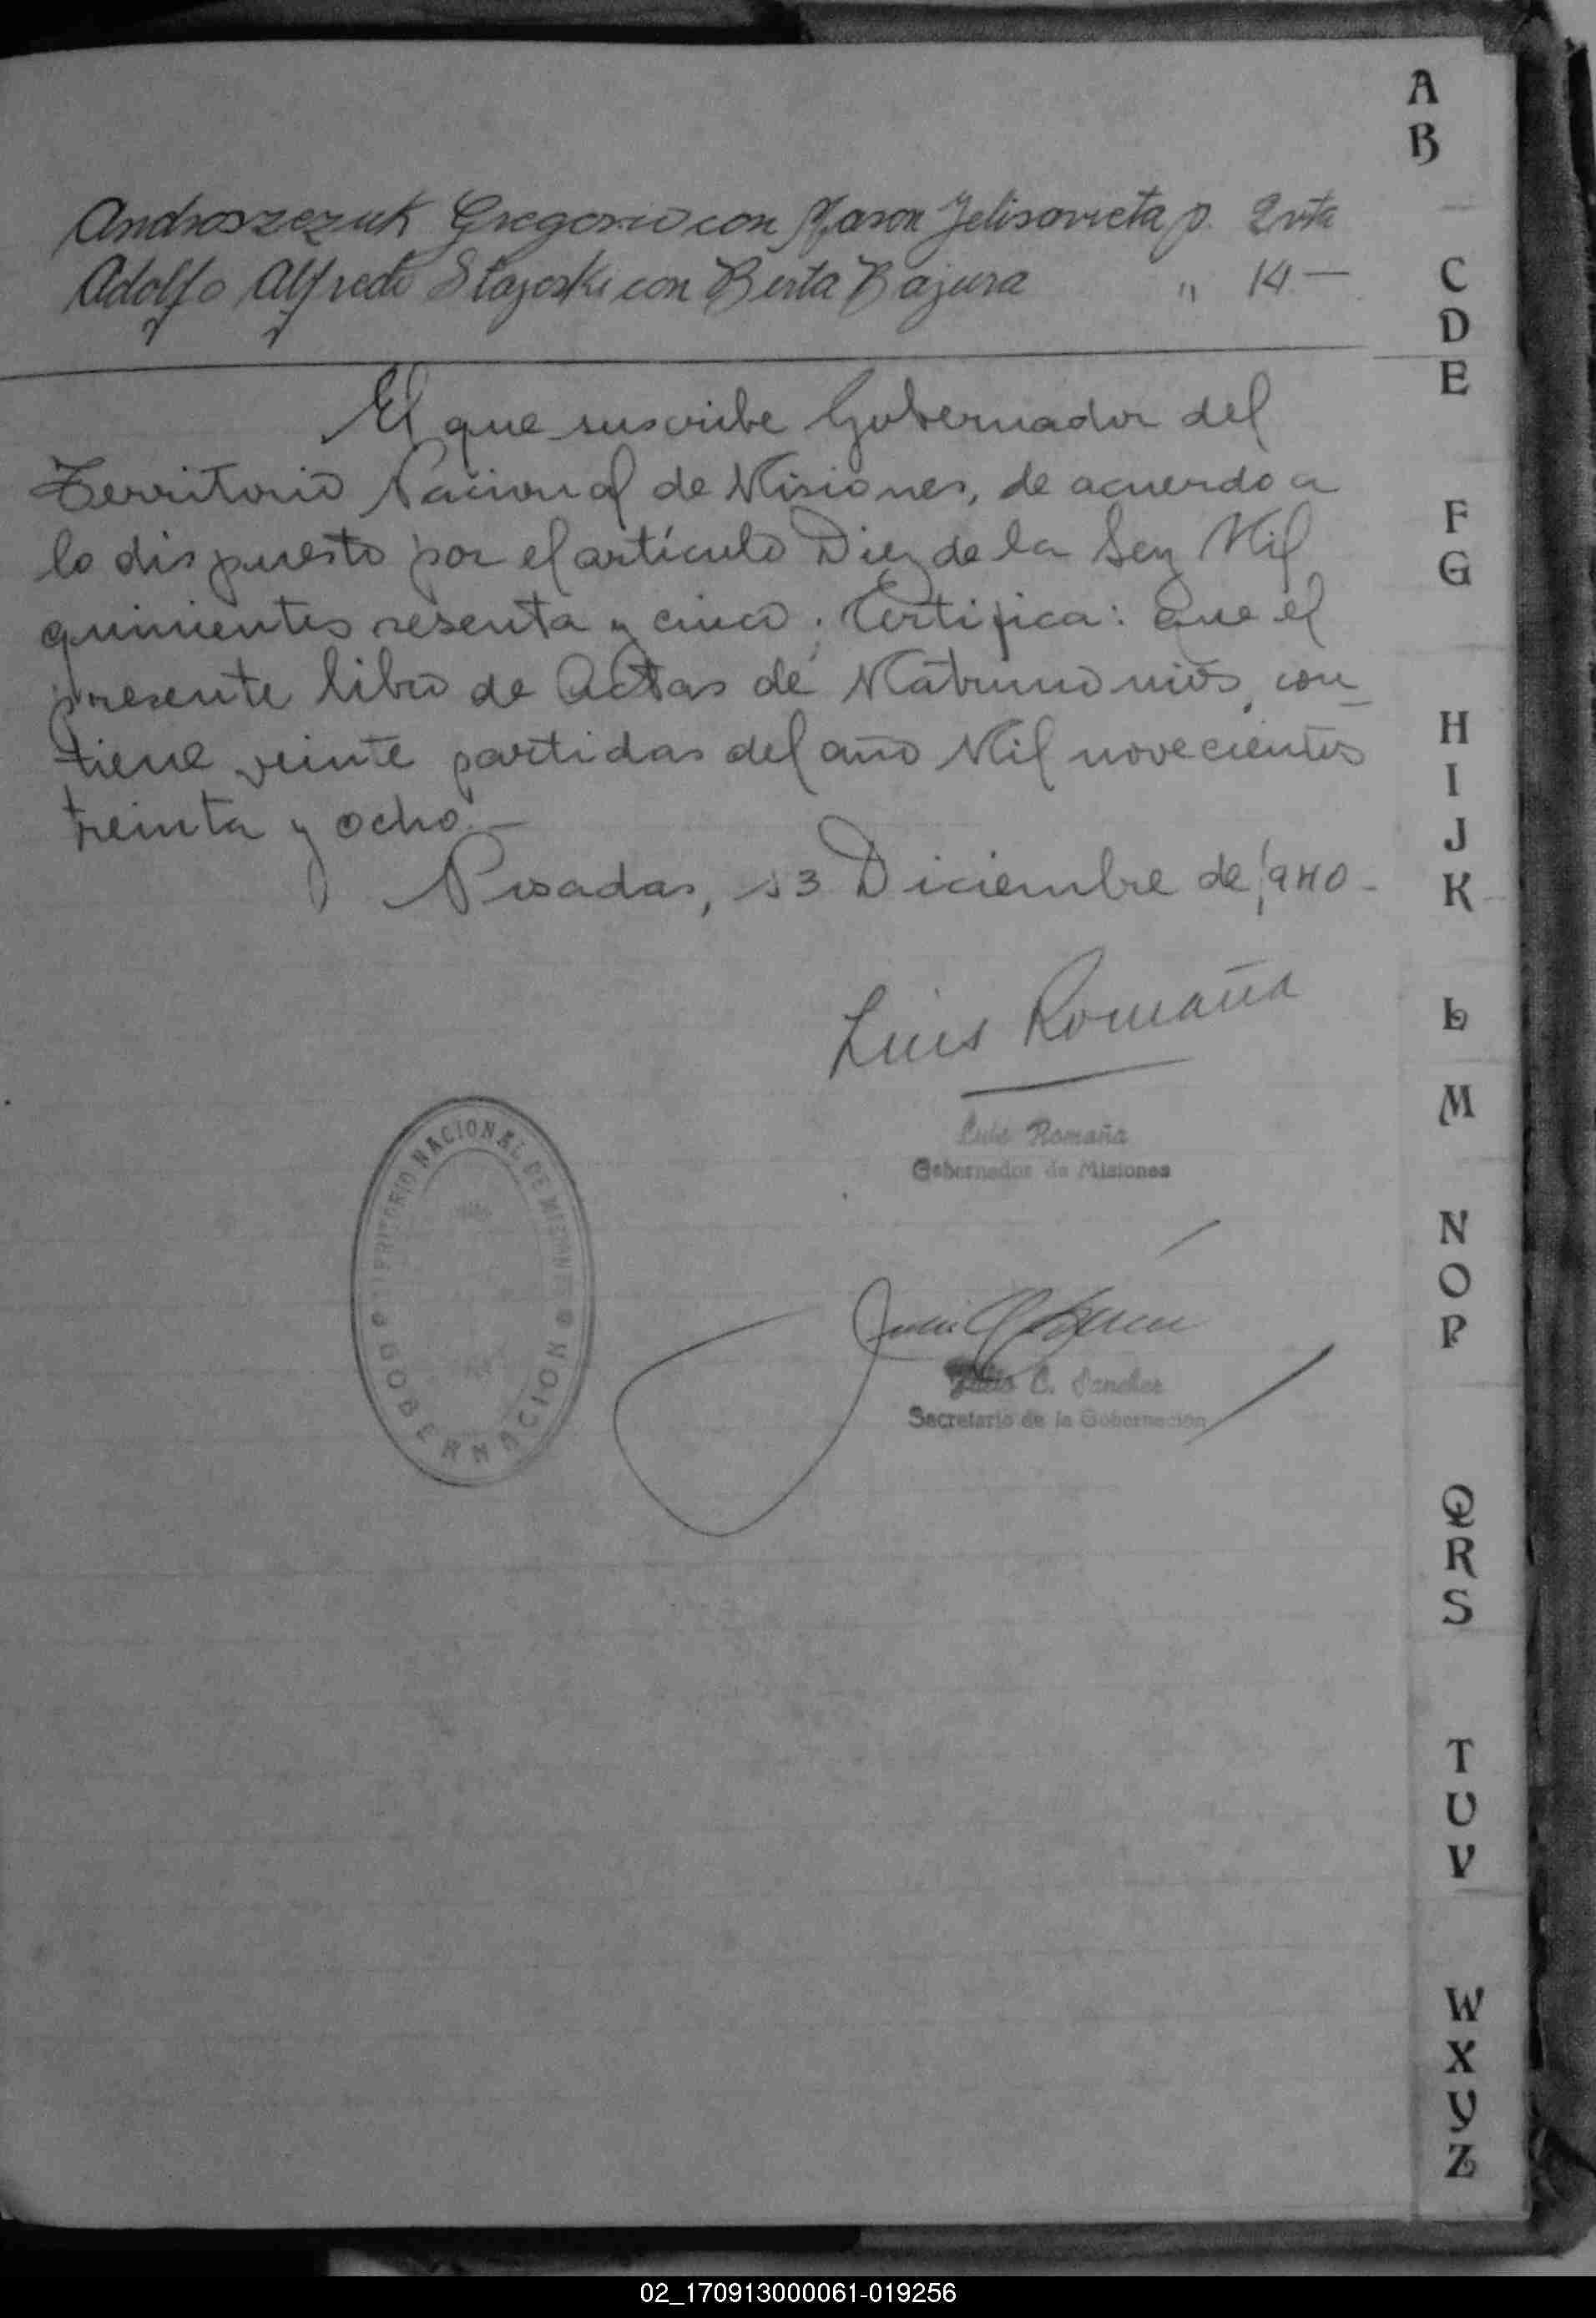 Androszezuk Gregorio con Jelisavieta p. 2 vta
Adolfo Alfredo con Berta Bajura " 14 —
El que suscribe Gobernador del
Territorio Nacional de Misiones, de acuerdo a
lo dispuesto por el artículo Diez de la Ley Mil
quinientos sesenta y cinco; Certifica: Que el
presente libro de Actas de Matrimonios, con_
tiene veinte partidas del año Mil novecientos
treinta y ocho.—
Posadas, 13 Diciembre de 1940 -
Luis Romaña
Luis Romaña
Gobernador de Misiones
TERRITORIO NACIONAL DE MISIONES
GOBERNACION
Julio C. Sanchez
Secretario de la Gobernación
A
B
C
D
E
F
G
H
I
J
K
L
M
N
O
P
Q
R
S
T
U
V
W
X
Y
Z
02_170913000061-019256